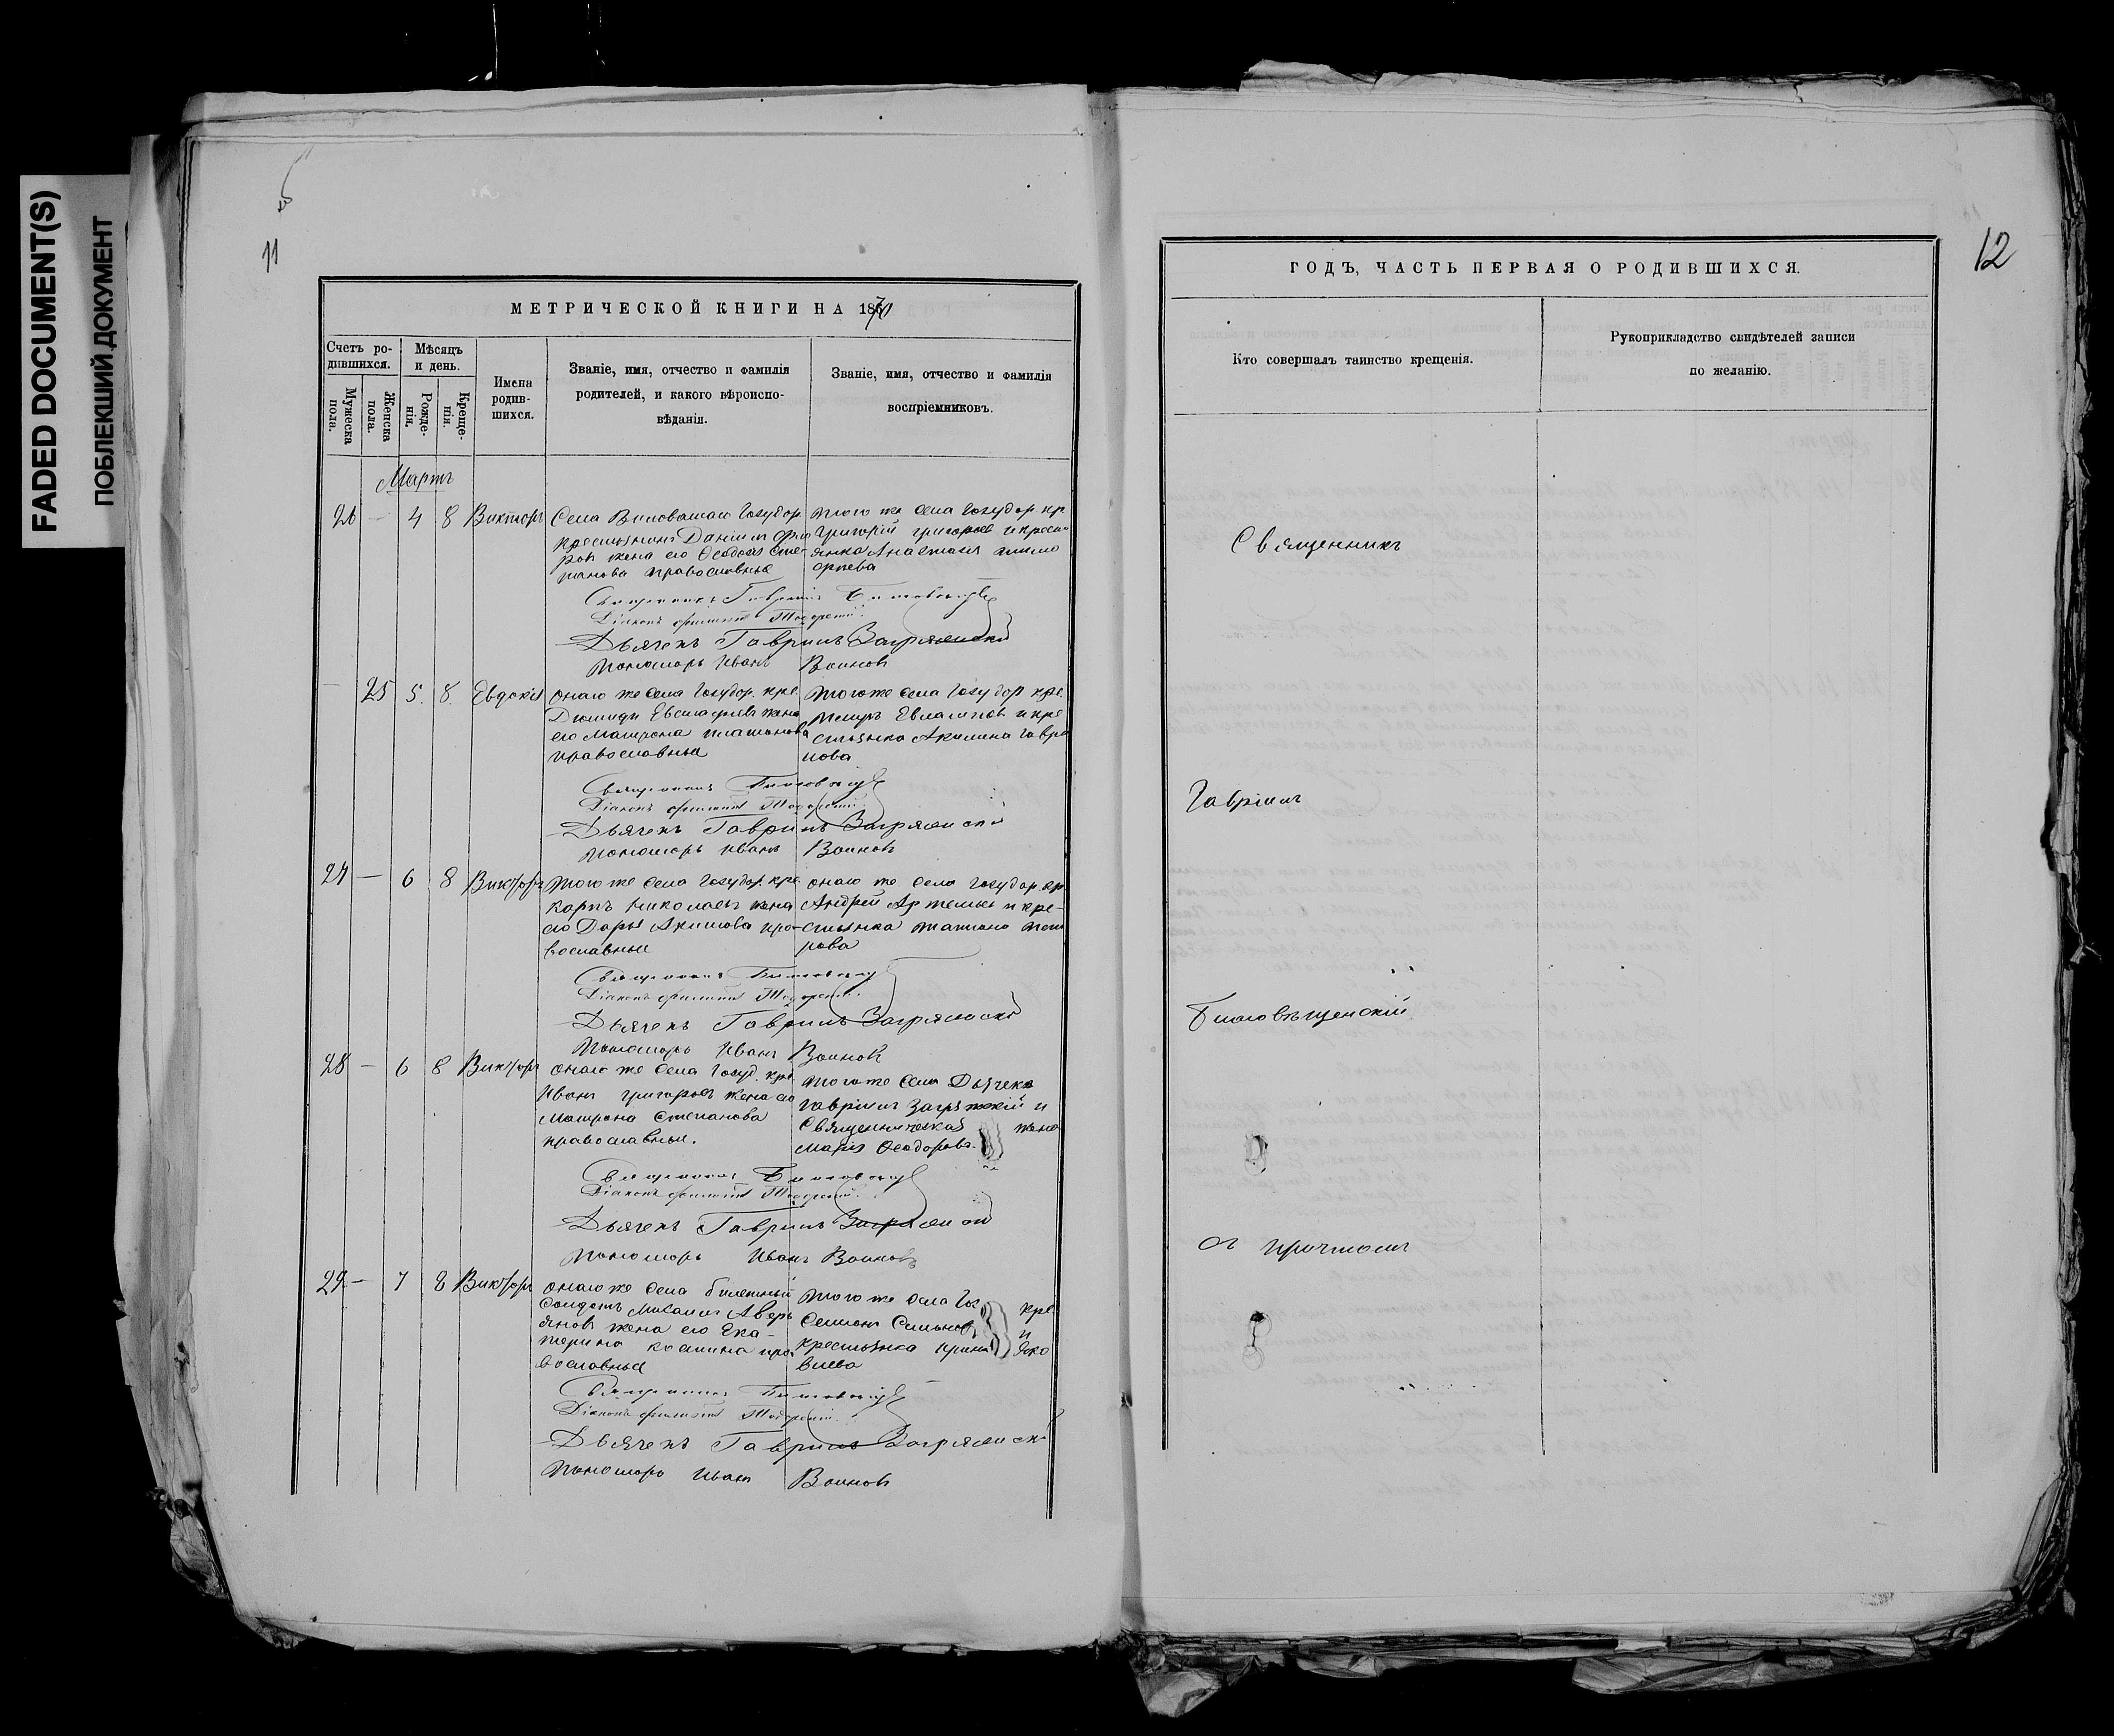 FADED DOCUMENT(S)
ПОБЛЕКШИЙ ДОКУМЕНТ
11
МЕТРИЧЕСКОЙ КНИГИ НА 1871
Счетъ ро-
дившихся.
Мужеска
пола.
Женска
пола.
Мѣсяцъ
и день.
Рожде-
нія.
Креще-
нія.
Имена
родив-
шихся.
Званіе, имя, отчество и фамилія
родителей, и какого вѣроиспо-
вѣданія.
Званіе, имя, отчество и фамилія
воспріемниковъ.
Мартъ
26 — 4 8 Викторъ
Села Государ
крестьянинъ Даніилъ
жена его Ѳеодосія Сте-
панова православные
того же села государ. кр.
Григорій Григорьевъ и кресть
янка Анастасія Тимо
ѳеева
Священникъ Гавріилъ
Діаконъ
Дьячекъ Гавріилъ Загряжскій
Пономарь Иванъ Воиновъ
— 25 5 8 Евдокія
онаго же села государ. кре.
Діомидъ жена
его Матрона Платонова
православные
того же села государ. кре.
Петръ Евлампіевъ и кре
стьянка Акилина Гаври
лова
Священникъ
Діаконъ
Дьячекъ Гавріилъ Загряжскій
Пономарь Иванъ Воиновъ
27 — 6 8 Викторъ
того же села государ. кре.
Карпъ Николаевъ жена
его Дарья Акимова пра-
вославные
онаго же села государ. кр.
Андрей Артемьевъ и кре-
стьянка Татіана Пет
рова
Священникъ
Діаконъ
Дьячекъ Гавріилъ Загряжскій
Пономарь Иванъ Воиновъ
28 — 6 8 Викторъ
онаго же села госуд. кре.
Иванъ Григорьевъ жена его
Матрона Степанова
православные.
того же села Дьячекъ
Гавріилъ Загряжскій и
Священническая жена
Марія Ѳеодорова.
Священникъ
Діаконъ
Дьячекъ Гавріилъ Загряжскій
Пономарь Иванъ Воиновъ
29 — 7 8 Викторъ
онаго же села билетный
солдатъ Михаилъ Аверь
яновъ жена его Ека-
терина Космина пра
вославные
того же села гос. кре.
Симеонъ и
крестьянка Ирина Яко
влева
Священникъ
Діаконъ
Дьячекъ Гавріилъ Загряжскій
Пономарь Иванъ Воиновъ
12
ГОДЪ, ЧАСТЬ ПЕРВАЯ О РОДИВШИХСЯ.
Кто совершалъ таинство крещенія.
Рукоприкладство свидѣтелей записи
по желанію.
Священникъ
Гавріилъ
Благовѣщенскій
съ причтомъ